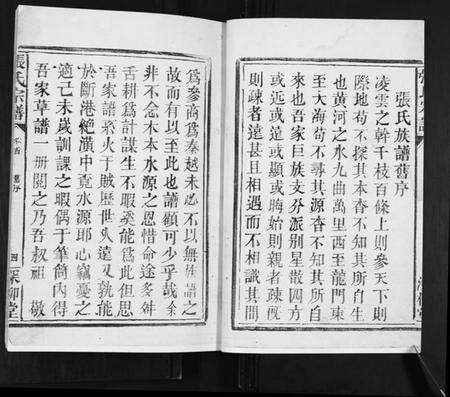 張氏族譜舊序
凌雲之幹千枝百條上則參天下則
際地苟不探其本杳不知其所自生
也黃河之水九曲萬里西至龍門東
至大海苟不尋其源杳不知其所自
來也吾家巨族支分派別星散四方
或近或遠或顯或晦始則親者疎既
則疎者遠甚且相遇而不相識其間
張氏宗譜
卷首
舊序
四
爲參商爲秦越未必不以無譜之
故而有以至此也譜顧可少乎哉余
非不念木本水源之恩惜命途多舛
舌耕爲計謀生不暇奚能爲此但思
吾家譜於火于賊歷世久遠又孰能
於斷港絶潢中覓水源耶心竊憂之
適己未歲訓課之暇偶于筆筒內得
吾家草譜一冊閱之乃吾叔祖 敬